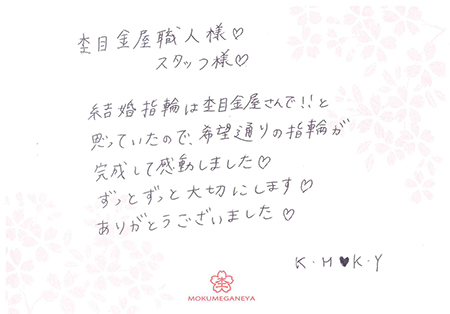 杢目金屋職人様♡
スタッフ様♡
結婚指輪は杢目金屋さんで!!と
思っていたので、希望通りの指輪が
完成して感動しました♡
ずっとずっと大切にします♡
ありがとうございました♡
K・M♥K・Y
MOKUMEGANEYA